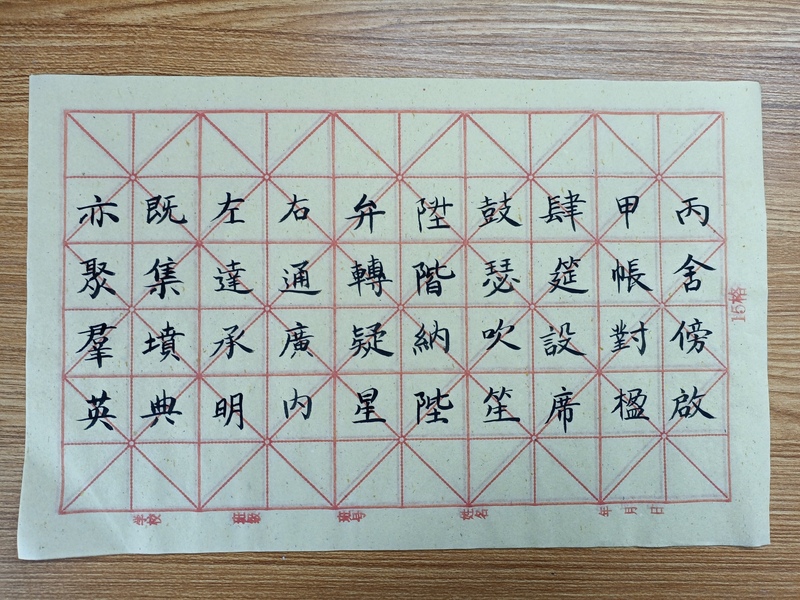 丙舍傍啟
甲帳對楹
肆筵設席
鼓瑟吹笙
陞階納陛
弁轉疑星
右通廣内
左達承明
既集墳典
亦聚羣英
15格
学校
班级
班号
姓名
年月日